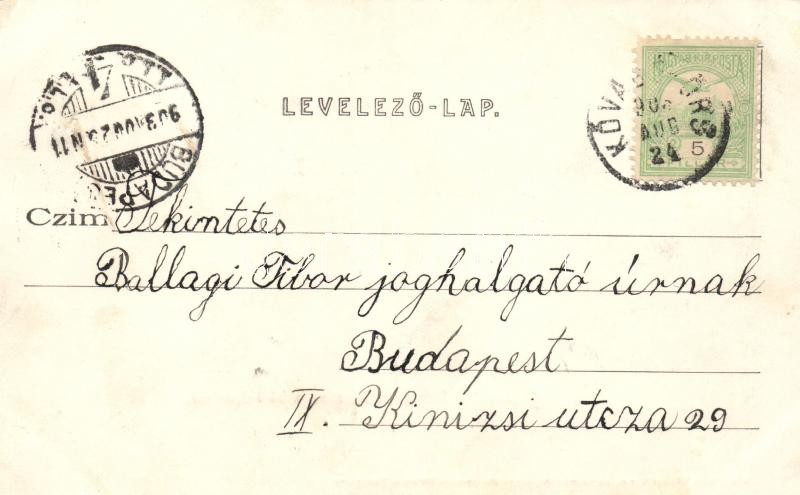 LEVELEZŐ-LAP.
MAGYAR KIR. POSTA
5
903 AUG 24
BUDAPEST
903 AUG 25 N11
Czim Tekintetes
Ballagi Tibor joghalgató úrnak
Budapest
IX. Kinizsi utcza 29